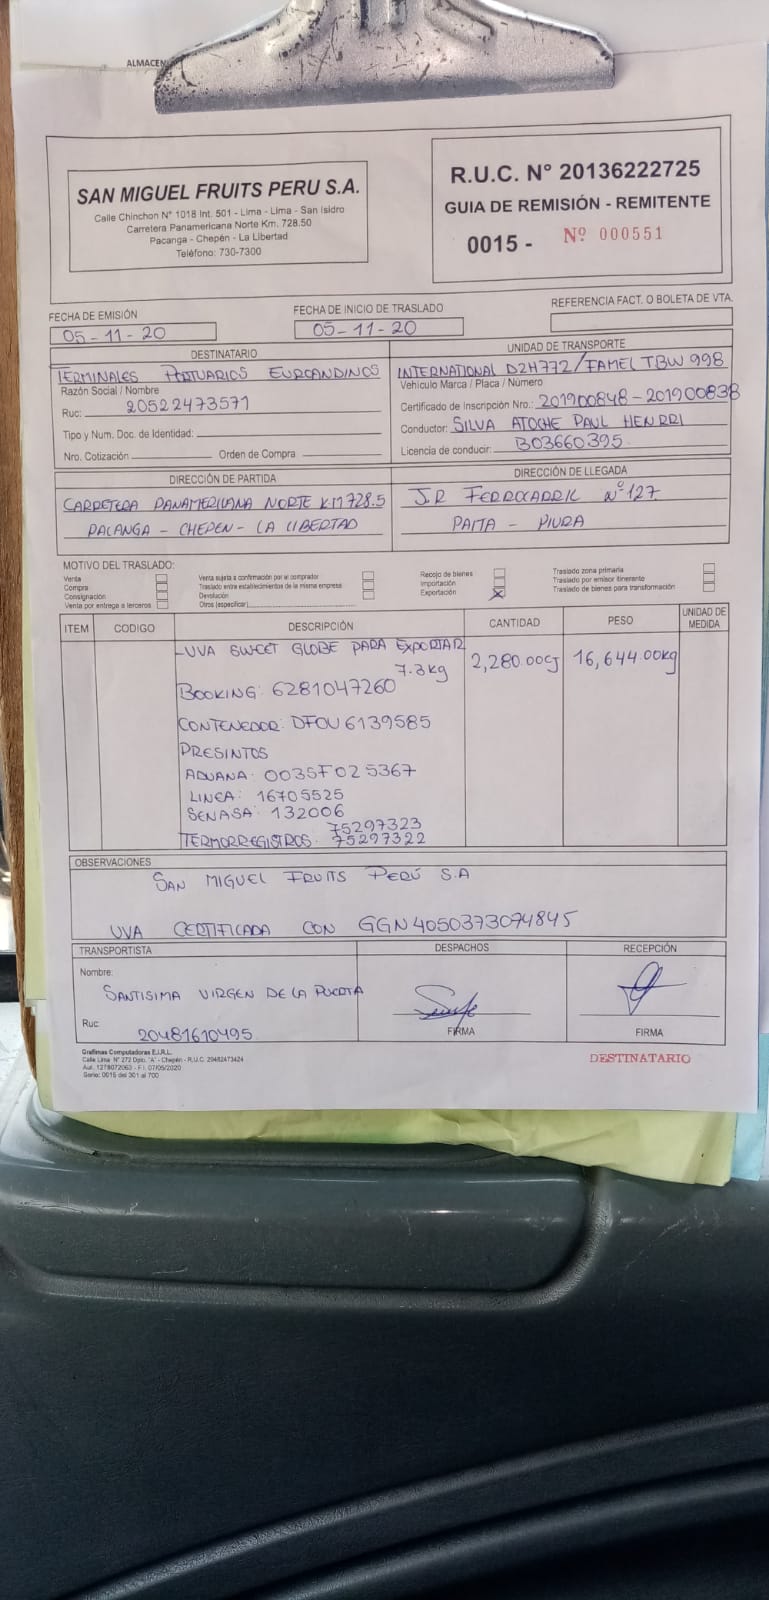 ALMACEN
SAN MIGUEL FRUITS PERU S.A.
Calle Chinchon N° 1018 Int. 501 - Lima - Lima - San Isidro
Carretera Panamericana Norte Km. 728.50
Pacanga - Chepén - La Libertad
Teléfono: 730-7300
R.U.C. N° 20136222725
GUIA DE REMISIÓN - REMITENTE
0015 - Nº 000551
FECHA DE EMISIÓN
05-11-20
FECHA DE INICIO DE TRASLADO
05-11-20
REFERENCIA FACT. O BOLETA DE VTA.
DESTINATARIO
TERMINALES PORTUARIOS EUROANDINOS
Razón Social / Nombre
Ruc: 20522473571
Tipo y Num. Doc. de Identidad:
Nro. Cotización Orden de Compra
UNIDAD DE TRANSPORTE
INTERNATIONAL D2H772/FAMEL TBW 998
Vehiculo Marca / Placa / Número
Certificado de Inscripción Nro.: 201900848-201900838
Conductor: SILVA ATOCHE PAUL HENRRI
Licencia de conducir: B03660395
DIRECCIÓN DE PARTIDA
CARRETERA PANAMERICANA NORTE KM 728.5
PACANGA - CHEPEN - LA LIBERTAD
DIRECCIÓN DE LLEGADA
J.R FERROCARRIL N°127
PAITA - PIURA
MOTIVO DEL TRASLADO:
Venta
Compra
Consignación
Venta por entrega a terceros
Venta sujeta a confirmación por el comprador
Traslado entre establecimientos de la misma empresa
Devolución
Otros (especificar)
Recojo de bienes
Importación
Exportación X
Traslado zona primaria
Traslado por emisor itinerante
Traslado de bienes para transformación
ITEM CODIGO DESCRIPCIÓN CANTIDAD PESO UNIDAD DE MEDIDA
-UVA SWEET GLOBE PARA EXPORTAR
7.3kg 2,280.00CJ 16,644.00kg
BOOKING: 6281047260
CONTENEDOR: DFOU 6139585
PRESINTOS
ADUANA: 0035F025367
LINEA: 16705525
SENASA: 132006
75297323
TERMORREGISTROS: 75297322
OBSERVACIONES
SAN MIGUEL FRUITS PERÚ S.A
UVA CERTIFICADA CON GGN 4050373074845
TRANSPORTISTA
Nombre:
SANTISIMA VIRGEN DE LA PUERTA
Ruc
20481610495
DESPACHOS
FIRMA
RECEPCIÓN
FIRMA
Grafimas Computadoras E.I.R.L.
Calle Lima N° 272 Dpto. "A" - Chepén - R.U.C. 20482473424
Aut.: 1278072063 - F.I. 07/05/2020
Serie: 0015 del 301 al 700
DESTINATARIO